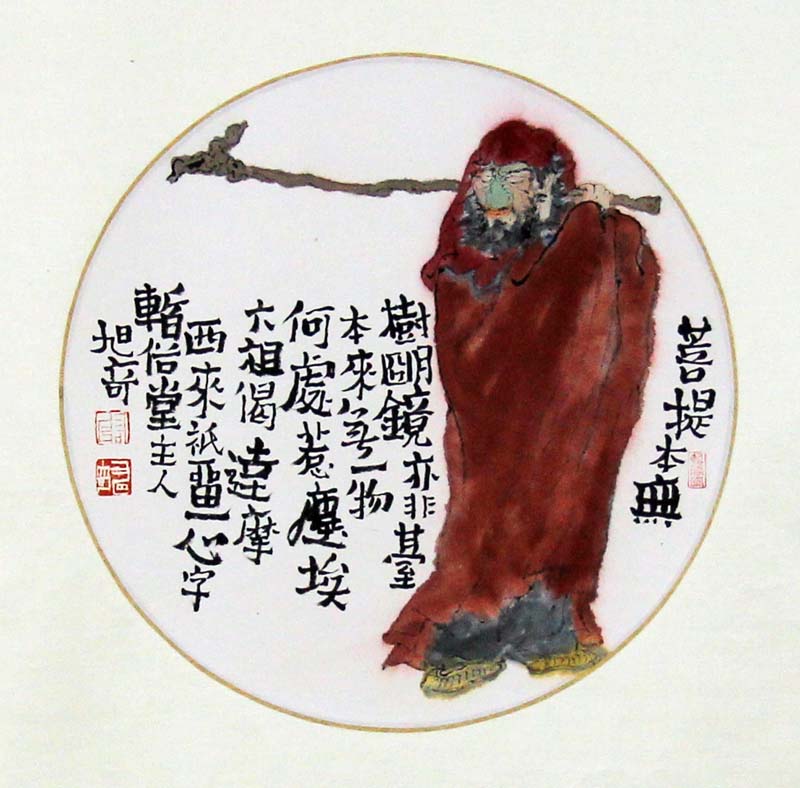 菩提本無
樹朙鏡亦非臺
本來無一物
何處惹塵埃
六祖偈達摩
西來祇畱一心字
俗堂主人
旭奇